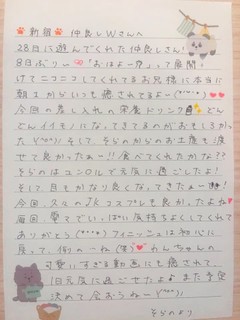 新宿 仲良しWさんへ
28日に遊んでくれた仲良しさん!
8日ぶり〜 "おはよー♡"って扉開
けてニコニコしてくれてるお兄様に本当に
朝っからいっも癒されてるよ〜
今回の差し入れの栄養ドリンク
どんイイモノになってきてるのがおもしろかっ
た そして、そらのからのお土産も渡
せて良かったぁー!! 食べてくれたかな??
そらのは で元気に過ごしたよ!
そして、目もかなり良くなってきたぁー!
今回、久々のJKコスプレも良かったよね
毎回、愛でてい〜ぱい気持ちよくしてくれて
ありがとう フィニッシュは初心に
戻って、 のーね(笑) わんちゃんの
可愛いすぎる動画にも癒されて
1日元気に過ごせたよ また予定
決めて会おうねー
そらのより